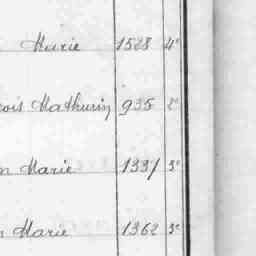 Marie 1528 4e
cois Mathurin 935 2e
n Marie 1331 3e
n Marie 1362 3e